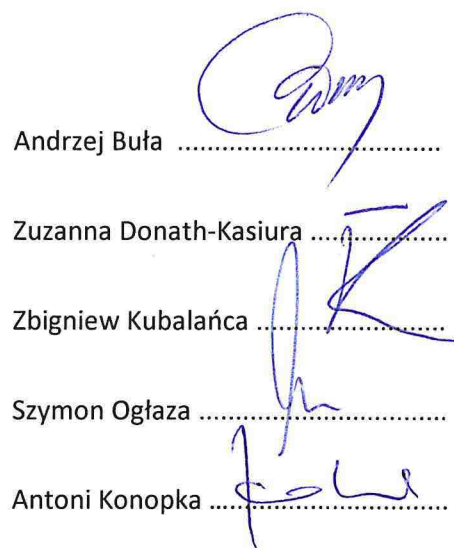 Andrzej Buła ........................................
Zuzanna Donath-Kasiura ....................
Zbigniew Kubalańca ............................
Szymon Ogłaza .....................................
Antoni Konopka ...................................